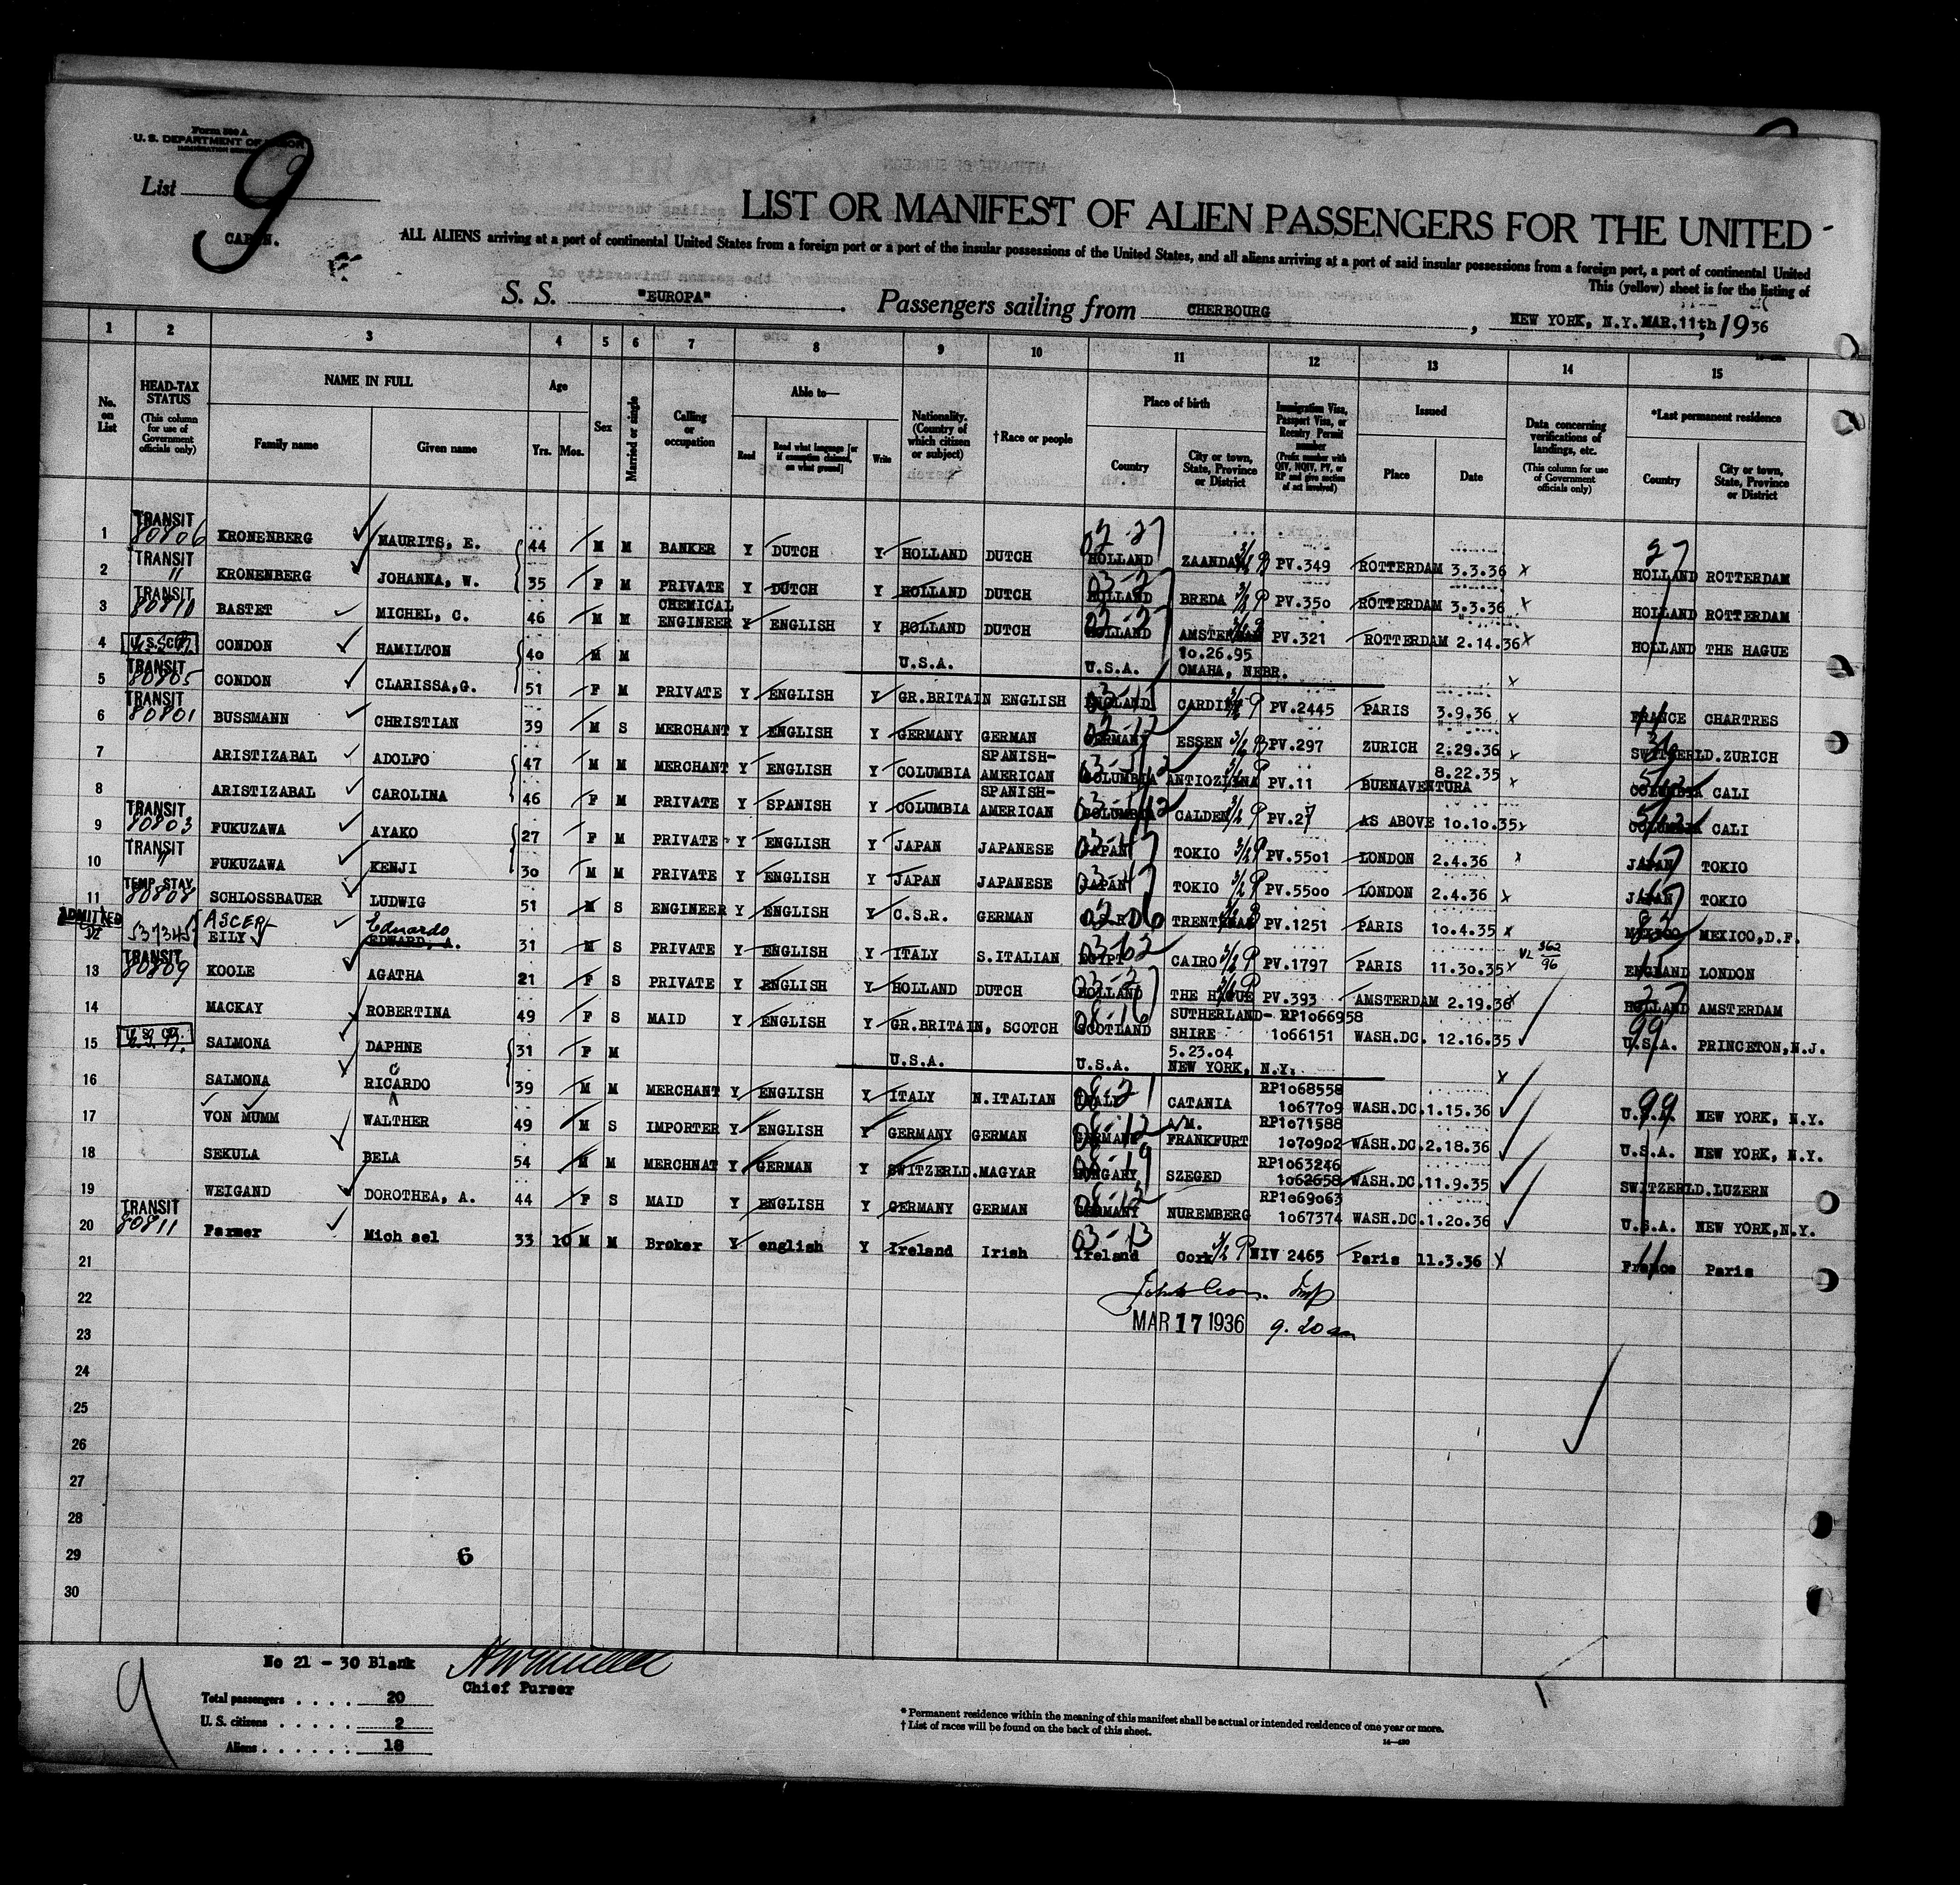 Form 500 A
U. S. DEPARTMENT OF LABOR
List 9
CABIN.
LIST OR MANIFEST OF ALIEN PASSENGERS FOR THE UNITED
ALL ALIENS arriving at a port of continental United States from a foreign port or a port of the insular possessions of the United States, and all aliens arriving at a port of said insular possessions from a foreign port, a port of continental United
This (yellow) sheet is for the listing of
S. S. "EUROPA" Passengers sailing from CHERBOURG, NEW YORK, N.Y. MAR.11th, 1936
1 2 3 4 5 6 7 8 9 10 11 12 13 14 15
No. on List
HEAD-TAX STATUS (This column for use of Government officials only)
NAME IN FULL
Family name Given name
Age Yrs. Mos.
Sex
Married or single
Calling or occupation
Able to— Read Read what language [or if exemption claimed, on what ground] Write
Nationality. (Country of which citizen or subject)
† Race or people
Place of birth Country City or town, State, Province or District
Immigration Visa, Passport Visa, or Reentry Permit number (Prefix number with QIV, NQIV, PV, or RP and give section of act involved)
Issued Place Date
Data concerning verifications of landings, etc. (This column for use of Government officials only)
*Last permanent residence Country City or town, State, Province or District
1 TRANSIT 80806 KRONENBERG MAURITS, E. 44 M M BANKER Y DUTCH Y HOLLAND DUTCH HOLLAND ZAANDAM PV.349 ROTTERDAM 3.3.36 x HOLLAND ROTTERDAM
2 TRANSIT " KRONENBERG JOHANNA, W. 35 F M PRIVATE Y DUTCH Y HOLLAND DUTCH HOLLAND BREDA PV.350 ROTTERDAM 3.3.36 x HOLLAND ROTTERDAM
3 TRANSIT 80810 BASTET MICHEL, C. 46 M M CHEMICAL ENGINEER Y ENGLISH Y HOLLAND DUTCH HOLLAND AMSTERDAM PV.321 ROTTERDAM 2.14.36 x HOLLAND THE HAGUE
4 CONDON HAMILTON 40 M M U.S.A. U.S.A. 10.26.95 OMAHA, NEBR.
5 TRANSIT 80805 CONDON CLARISSA,G. 51 F M PRIVATE Y ENGLISH Y GR.BRITAIN ENGLISH ENGLAND CARDIFF PV.2445 PARIS 3.9.36 x FRANCE CHARTRES
6 TRANSIT 80801 BUSSMANN CHRISTIAN 39 M S MERCHANT Y ENGLISH Y GERMANY GERMAN GERMANY ESSEN PV.297 ZURICH 2.29.36 x SWITZERLD.ZURICH
7 ARISTIZABAL ADOLFO 47 M M MERCHANT Y ENGLISH Y COLUMBIA SPANISH-AMERICAN COLUMBIA PV.11 BUENAVENTURA 8.22.35 x COLUMBIA CALI
8 ARISTIZABAL CAROLINA 46 F M PRIVATE Y SPANISH Y COLUMBIA SPANISH-AMERICAN COLUMBIA PV.27 AS ABOVE 10.10.35 x COLUMBIA CALI
9 TRANSIT 80803 FUKUZAWA AYAKO 27 F M PRIVATE Y ENGLISH Y JAPAN JAPANESE JAPAN TOKIO PV.5501 LONDON 2.4.36 x JAPAN TOKIO
10 TRANSIT " FUKUZAWA KENJI 30 M M PRIVATE Y ENGLISH Y JAPAN JAPANESE JAPAN TOKIO PV.5500 LONDON 2.4.36 x JAPAN TOKIO
11 TEMP. STAY 80808 SCHLOSSBAUER LUDWIG 51 M S ENGINEER Y ENGLISH Y C.S.R. GERMAN PV.1251 PARIS 10.4.35 x MEXICO MEXICO,D.F.
12 ADMITTED 537345 ASCER EILY Eduardo EDWARD, A. 31 M S PRIVATE Y ENGLISH Y ITALY S.ITALIAN EGYPT CAIRO PV.1797 PARIS 11.30.35 x VL 362/96 ENGLAND LONDON
13 TRANSIT 80809 KOOLE AGATHA 21 F S PRIVATE Y ENGLISH Y HOLLAND DUTCH HOLLAND THE HAGUE PV.393 AMSTERDAM 2.19.36 HOLLAND AMSTERDAM
14 MACKAY ROBERTINA 49 F S MAID Y ENGLISH Y GR.BRITAIN, SCOTCH SCOTLAND SUTHERLAND-SHIRE RP1066958 1066151 WASH.DC. 12.16.35 U.S.A. PRINCETON,N.J.
15 SALMONA DAPHNE 31 F M U.S.A. U.S.A. 5.23.04 NEW YORK, N.Y.
16 SALMONA RICARDO 39 M M MERCHANT Y ENGLISH Y ITALY N.ITALIAN ITALY CATANIA RP1068558 1067709 WASH.DC.1.15.36 U.S.A. NEW YORK, N.Y.
17 VON MUMM WALTHER 49 M S IMPORTER Y ENGLISH Y GERMANY GERMAN GERMANY A/M. FRANKFURT RP1071588 1070902 WASH.DC.2.18.36 U.S.A. NEW YORK, N.Y.
18 SEKULA BELA 54 M M MERCHNAT Y GERMAN Y SWITZERLD.MAGYAR HUNGARY SZEGED RP1063246 1062658 WASH.DC.11.9.35 SWITZERLD.LUZERN
19 WEIGAND DOROTHEA, A. 44 F S MAID Y ENGLISH Y GERMANY GERMAN GERMANY NUREMBERG RP1069063 1067374 WASH.DC.1.20.36 U.S.A. NEW YORK,N.Y.
20 TRANSIT 80811 Farmer Mich ael 33 10 M M Broker Y english Y Ireland Irish Ireland Cork NIV 2465 Paris 11.3.36 x France Paris
21
22
MAR 17 1936 9.20 am
23
24
25
26
27
28
29
6
30
No 21 - 30 Blank
Chief Purser
9
Total passengers . . . . 20
U. S. citizens . . . . . 2
Aliens . . . . . . 18
* Permanent residence within the meaning of this manifest shall be actual or intended residence of one year or more.
† List of races will be found on the back of this sheet.
14—430